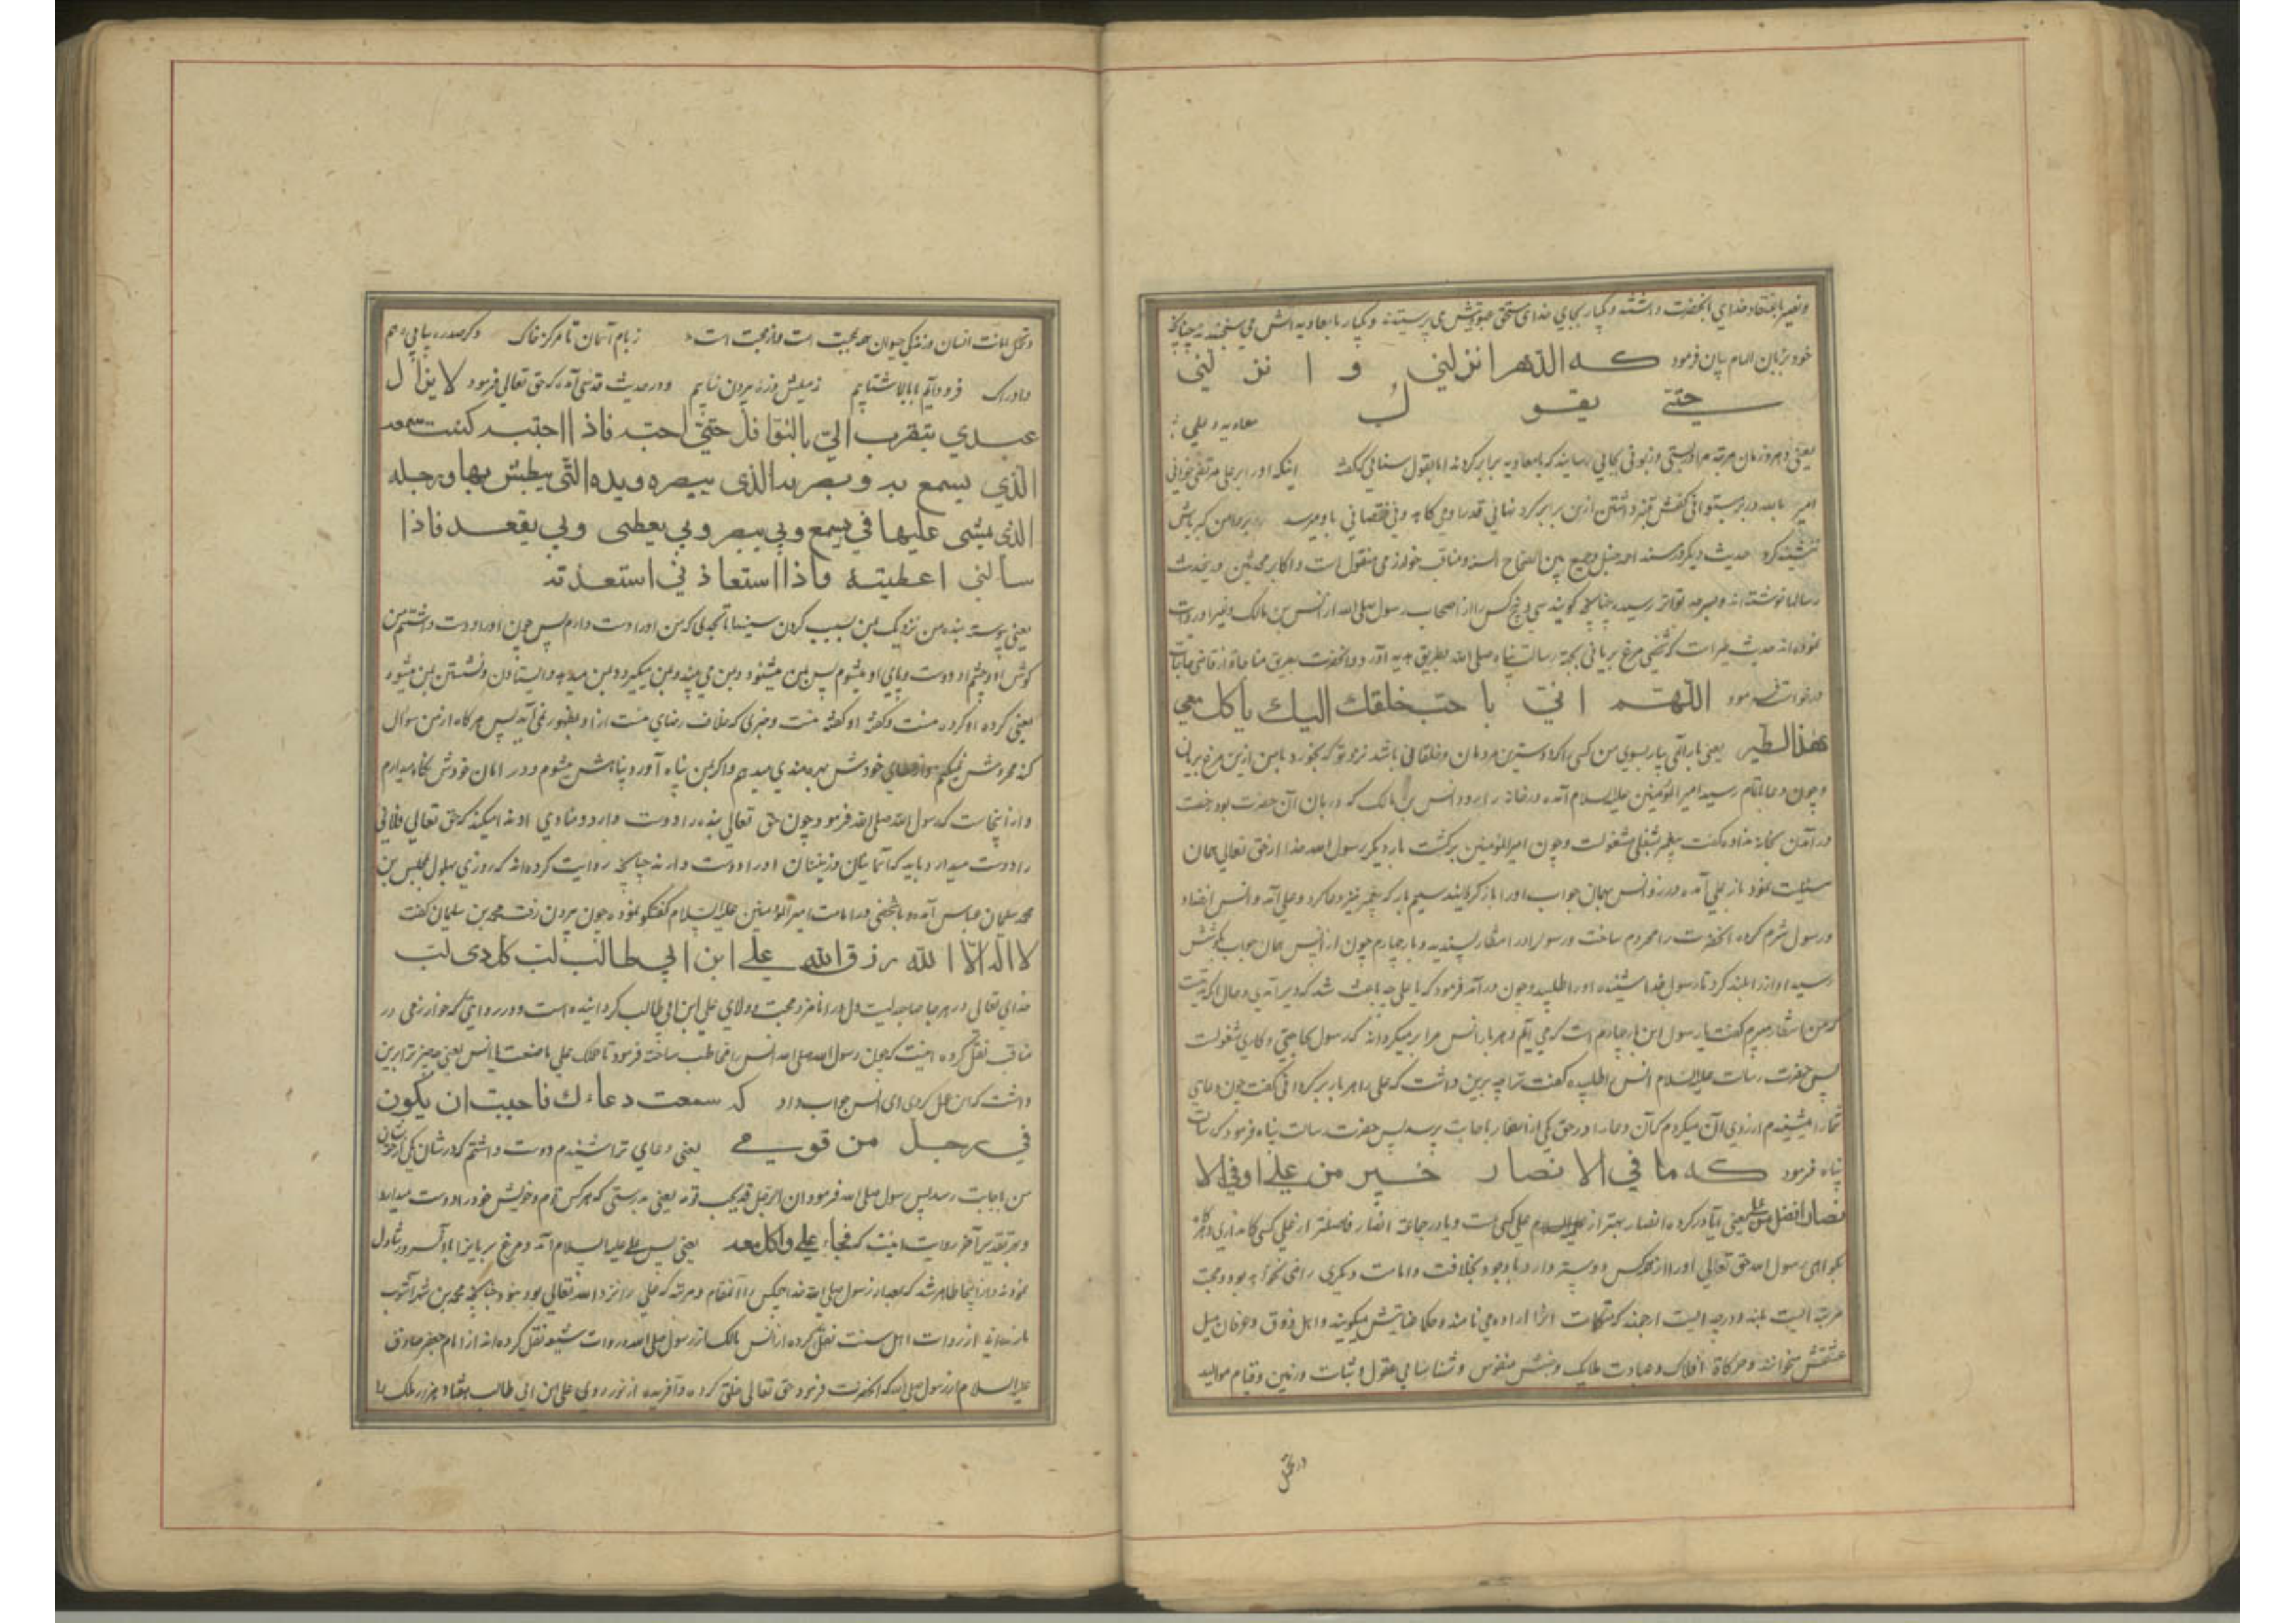 خود بزبان الهام بیان فرمود که الدهر انزلنی و انزلنی
حتی یقول معاویه و علی
یعنی دهر و زمان مرتبه مرا بپستی و زبونی بجایی رسانید که با معاویه برابر کردند اما بقول سنائی که گفته اینکه او را بر علی مرتضی خوانی
حدیث دیگر در مسند احمد حنبل و جمع بین الصحاح السته و مناقب خوارزمی منقول است و اکابر محدثین درین حدیث
رسالها نوشته‌اند و بسرحد تواتر رسیده چنانچه گویند سی و پنج کس را از اصحاب رسول صلی الله از انس بن مالک و غیر او روات
نموده‌اند حدیث طیر است که شخصی مرغ بریانی بجهة رسالت پناه صلی الله بطریق هدیه آورد و آنحضرت بطریق مناجات از قاضی حاجات
درخواست فرمود اللهم ائتنی باحب خلقك الیك یأکل معی
هذا الطیر یعنی بار الهی بیار بسوی من کسی را که دوسترین مردمان و خلقانی باشد نزد تو که بخورد با من ازین مرغ بریان
و چون دعا باتمام رسید امیر المؤمنین علیه السلام آمده در خانه را بزد و انس بن مالک که دربان آن حضرت بود رخصت
در آمدن بخانه نداده گفت پیغمبر بشغلی مشغولست و چون امیر المؤمنین برگشت بار دیگر رسول الله خدا از حق تعالی همان
مسئلت نمود باز علی آمده در زد و انس بهمان جواب او را باز گردانید سیم بار که پیغمبر نیز دعا کرد و علی آمد و انس از خدا
و رسول شرم کرده آنحضرت را محروم ساخت و رسول را در انتظار پسندید و بار چهارم چون از انس همان جواب بگوشش
رسید آواز را بلند کرد تا رسول خدا شنیده او را طلبید و چون در آمد فرمود که یا علی چه باعث شد که دیر آمدی و حال آنکه مدتیست
که من انتظار میبرم گفت یا رسول این بار چهارم است که می آیم و هر بار انس مرا بر میگرداند که رسول بحاجتی و کاری مشغولست
پس حضرت رسالت علیه السلام انس را طلبیده گفت ترا چه برین داشت که علی را هر بار برگردانی گفت چون دعای
شما را میشنیدم آرزوی آن میکردم که آن دعا را در حق یکی از انصار باجابت برسد پس حضرت رسالت پناه فرمود که رسالت
پناه فرمود که ما فی الانصار خیر من علی او فی الا
نصار افضل من علی یعنی آیا در گروه انصار بهتر از علی کسی هست و یا در جماعة انصار فاضلتر از علی کسی
بگو ای رسول الله حق تعالی او را از همه کس دوستر دارد با وجود بخلافت و امامت دیگری راضی نخواهد بود و محبت
مرتبه ایست بلند و درجه ایست ارجمند که متکلمان آنرا اراده می نامند و حکما عنایتش میگویند و اهل ذوق و عرفان میل
عشقش میخوانند و حرکات افلاک و عبادت ملایک و جنبش نفوس و شناسایی عقول و ثبات زمین و قیام موالید
در تحمل
و تحمل امانت انسان و زندگی حیوان همه بمحبت است و از محبت است زبام آسمان تا مرکز خاک وگر صدره بپای وهم
و ادراک فرود آییم یا بالا شتابیم زمیلش ذرّه بیرون نیابیم و در حدیث قدسی آمده که حق تعالی فرمود لا یزال
عبدی یتقرب الیّ بالنوافل حتی احبه فاذا احببته کنت سمعه
الذی یسمع به و بصره الذی یبصره ویده التی یبطش بها ورجله
الذی یمشی علیها فبی یسمع وبی یبصر وبی یعطی وبی یقعد فاذا
سألنی اعطیته واذا استعاذ نی استعذته
یعنی پیوسته بنده من نزدیک بمن بسبب کردن سنتها تا بحدی که من او را دوست دارم پس چون او را دوست داشتم من
گوش او و چشم او و دست و پای او میشوم پس بمن میشنود و بمن می بیند و بمن میگیرد و بمن میدهد و ایستادن و نشستن بمن میشود
یعنی کرده او کرده منست و گفته او گفته منست و چیزی که خلاف رضای منست ازو بظهور نمی آید پس هرگاه از من سوال
کند محرومش نمیکنم و از عطای خودش بهره مندی میدهم و اگر بمن پناه آورد پناهش میشوم و در امان خودش نگاه میدارم
و از اینجاست که رسول الله صلی الله فرمود چون حق تعالی بنده را دوست دارد منادی او ندا میکند که حق تعالی فلانی
را دوست میدارد باید که آسمانیان و زمینیان او را دوست دارند چنانچه روایت کرده‌اند که روزی بهلول بمجلس بن
محمد سلمان عباس آمده و با شخصی در امامت امیر المؤمنین علیه السلام گفتگو نموده چون بیرون رفت محمد بن سلیمان گفت
لا اله الا الله رزق الله علی ابن ابی طالب لب کل ذی لب
خدای تعالی در هر جا صاحب لیست دل او را نامزد محبت و ولای علی ابن ابی طالب گردانیده است و در روایتی که خوارزمی در
مناقب نقل کرده اینست که چون رسول الله صلی الله انس را مخاطب ساخته فرمود ما حملک علی ما صنعت یا انس یعنی چه چیز ترا برین
داشت که این عمل کردی ای انس جواب داد که سمعت دعاءك فاحببت ان یکون
فی رجل من قومی یعنی دعای ترا شنیدم دوست داشتم که در شان یکی از خویشان
من باجابت رسد پس رسول صلی الله فرمود ان الرجل قد یحب قومه یعنی بدرستی که هر کس قوم و خویش خود را دوست میدارد
و بر تقدیر آخر روایت اینست که فجاء علی واکل معه یعنی پس علی علیه السلام آمد و مرغ بریان را با آن سرور تناول
نمودند و از اینجا ظاهر شد که بعد از رسول صلی الله خدا هیچکس را آن مقام و مرتبه که علی را نزد الله تعالی بود نبود چنانچه محمد بن شهر آشوب
مازندرانی از روات اهل سنت نقل کرده از انس بن مالک از رسول صلی الله و روات شیعه نقل کرده‌اند از امام جعفر صادق
علیه السلام از رسول صلی الله که آنحضرت فرمود حق تعالی خلق کرده و آفریده از نور روی علی ابن ابی طالب هفتاد هزار ملک را